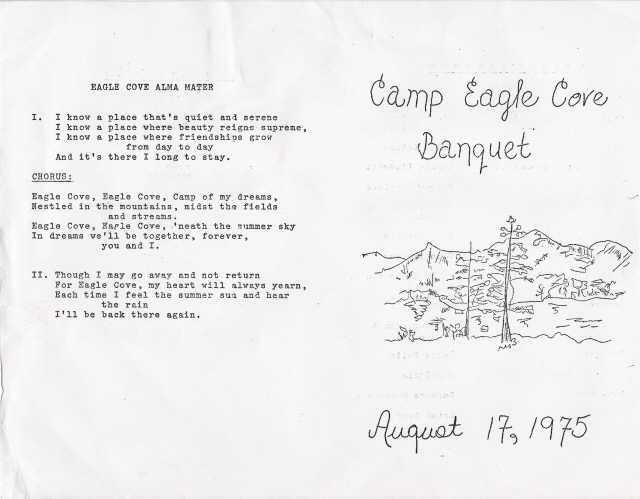 EAGLE COVE ALMA MATER
I. I know a place that's quiet and serene
I know a place where beauty reigns supreme,
I know a place where friendships grow
from day to day
And it's there I long to stay.
CHORUS:
Eagle Cove, Eagle Cove, Camp of my dreams,
Nestled in the mountains, midst the fields
and streams.
Eagle Cove, Eagle Cove, 'neath the summer sky
In dreams we'll be together, forever,
you and I.
II. Though I may go away and not return
For Eagle Cove, my heart will always yearn,
Each time I feel the summer sun and hear
the rain
I'll be back there again.
Camp Eagle Cove
Banquet
August 17, 1975